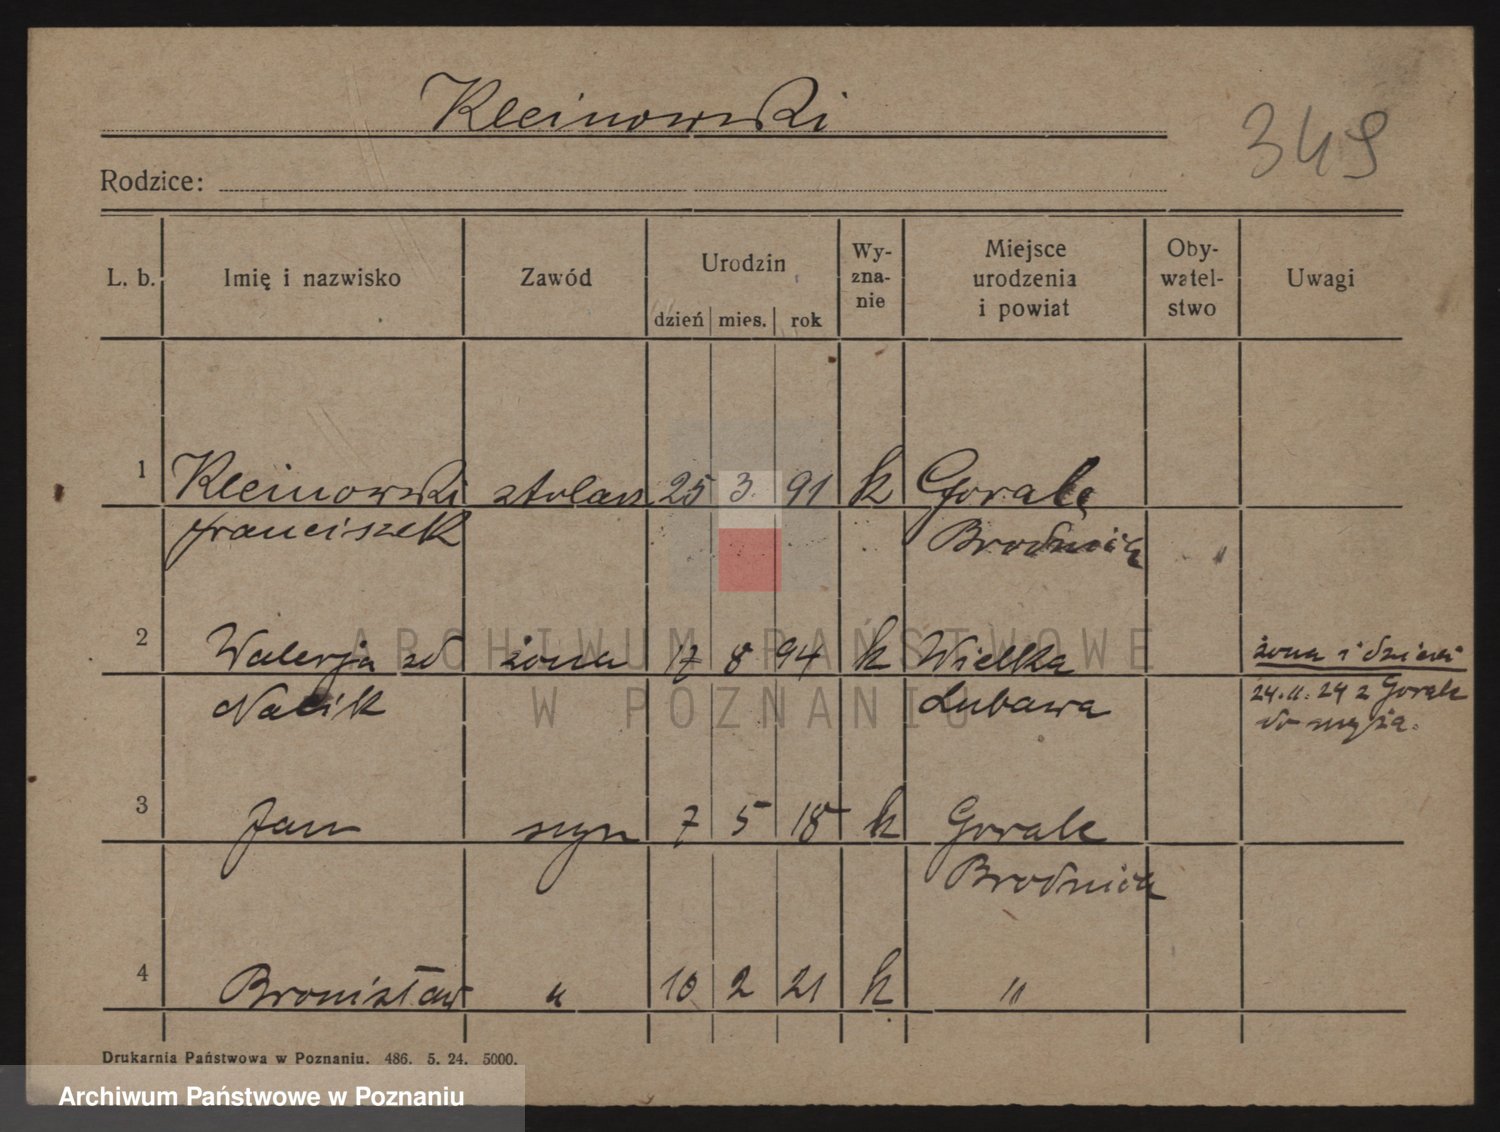 Kleinowski
349
Rodzice:
L. b. Imię i nazwisko Zawód Urodzin dzień mies. rok Wy-zna-nie Miejsce urodzenia i powiat Oby-watel-stwo Uwagi
1 Kleinowski stolarz 25 3. 91 k Gorale
Franciszek Brodnica "
2 Walerja zd żona 17 8 94 k Wielka żona i dzieci
Lubawa 24.11.24 z Gorale
do męża.
3 Jan syn 7 5 18 k Gorale
Brodnica
4 Bronisław " 10 2 21 k "
Drukarnia Państwowa w Poznaniu. 486. 5. 24. 5000.
ARCHIWUM PAŃSTWOWE
W POZNANIU
Archiwum Państwowe w Poznaniu